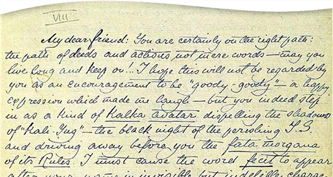 VIII
My dear friend: You are certainly on the right path:
the path of deeds and actions not mere words — may you
live long and keep on... I hope this will not be regarded by
you as an encouragement to be "goody-goody" — a happy
expression which made me laugh — but you indeed step
in as a kind of Kalka avatar dispelling the shadows
of "Kali-Yug" — the black night of the perishing T.S.
and driving away before you the fata morgana
of its Rules. I must cause the word fecit to appear
after your name in invisible but indelible charac